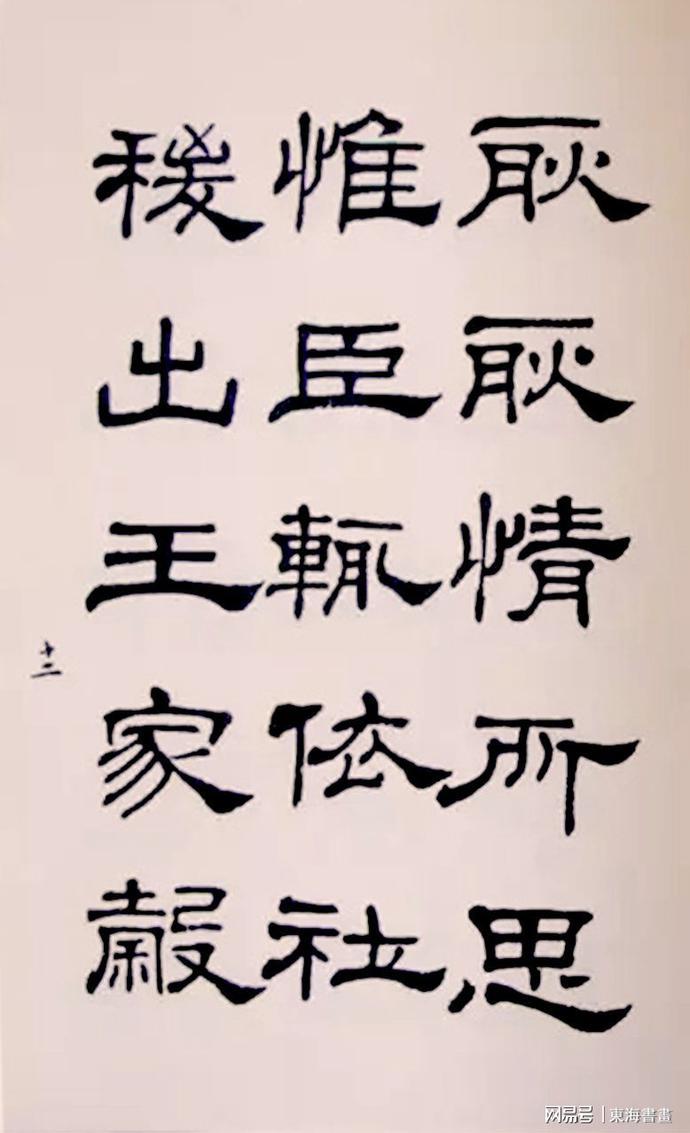 耿耿情所思
惟臣輒依社
稷出王家穀
十二
网易号 | 東海書畫